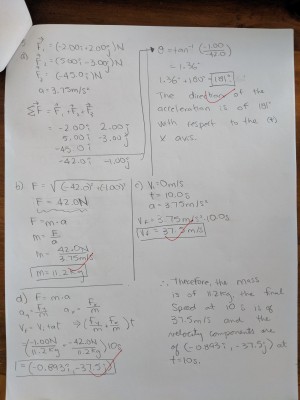 a)
F₁ = (-2.00î + 2.00ĵ) N
F₂ = (5.00î - 3.00ĵ) N
F₃ = (-45.0î) N
a = 3.75 m/s²
ΣF = F₁ + F₂ + F₃
= -2.00î 2.00ĵ
5.00î -3.00ĵ
-45.0î
-42.0î -1.00ĵ
θ = tan⁻¹ (-1.00/-42.0)
= 1.36°
1.36° + 180° = 181°
The direction of the
acceleration is of 181°
with respect to the (+)
x axis.
b) F = √(-42.0)² + (-1.00)²
F = 42.0N
F = m·a
m = F/a
m = 42.0N/3.75m/s²
m = 11.2kg
c) V₀ = 0m/s
t = 10.0s
a = 3.75m/s²
Vf = 3.75m/s² · 10.0s
Vf = 37.5m/s
d) F = m·a
Vf = V₀ + at
(-1.00N/11.2kg, -42.0N/11.2kg) 10s
= (-0.893î, -37.5ĵ)
∴ Therefore, the mass
is of 11.2kg, the final
speed at 10s is of
37.5m/s and the
velocity components are
of (-0.893î, -37.5ĵ) at
t = 10s.